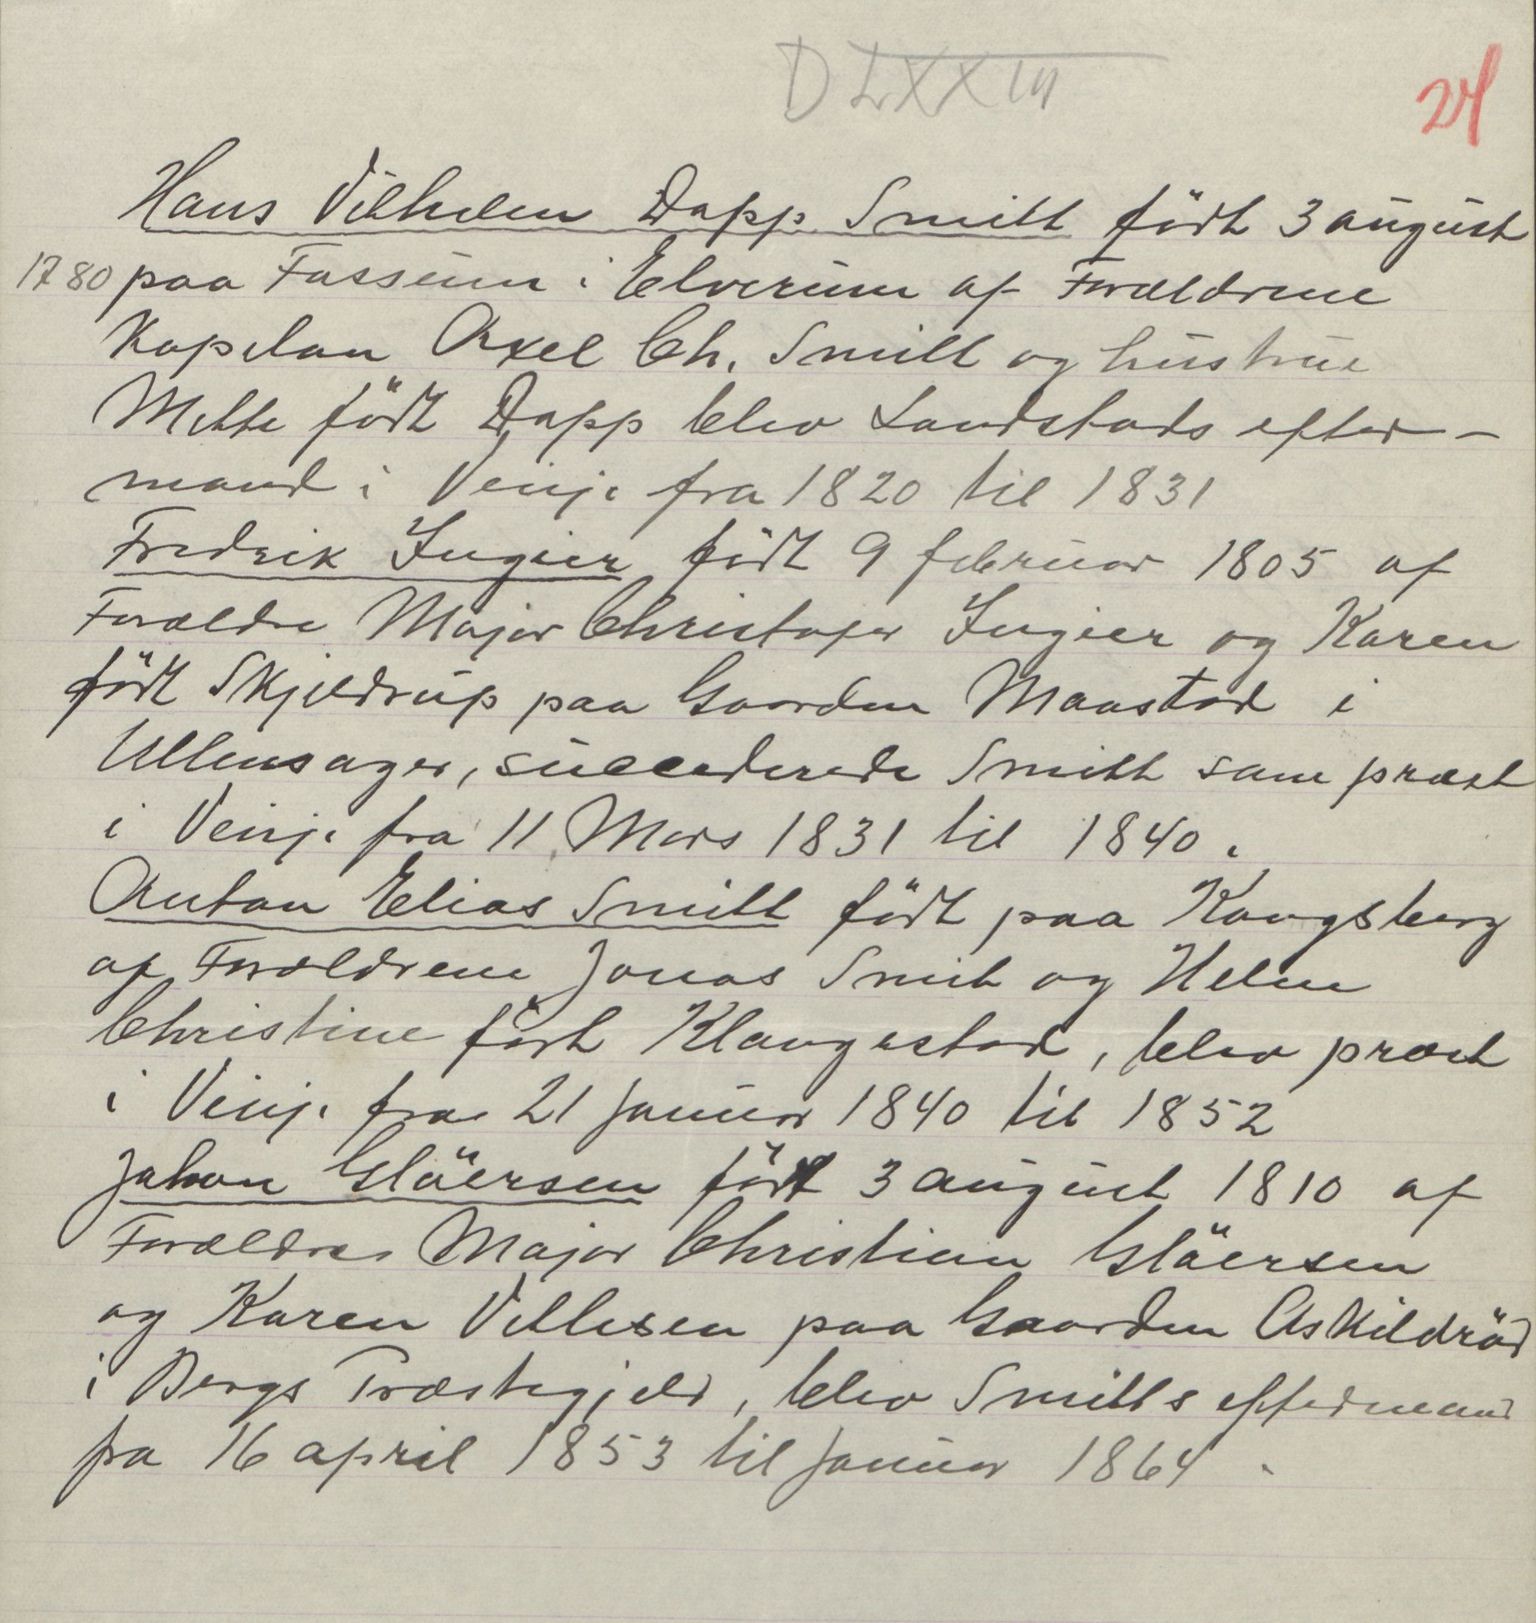 D LXXIII
24
Hans Vilhelm Dopp Smitt födt 3 august
1780 paa Fossum i Elverum af Forældrene
Kapelan Axel Ch. Smitt og hustrue
Mette födt Dopp blev Landstads efter-
mand i Vinje fra 1820 til 1831
Fredrik Ingier födt 9 februar 1805 af
Forældre Major Christofer Ingier og Karen
födt Skjeldrup paa Gaarden Maastad i
Ullensager, succederede Smitt som præst
i Vinje fra 11 Mars 1831 til 1840.
Anton Elias Smitt födt paa Kongsberg
af Forældrene Jonas Smit og Helene
Christine födt Klavestad, blev præst
i Vinje fra 21 Januar 1840 til 1852
Johan Glöersen födt 3 august 1810 af
Forældre Major Christian Glöersen
og Karen Villesen paa Gaarden Askildröd
i Bergs Præstegjeld, blev Smitts eftermand
fra 16 april 1853 til Januar 1864.